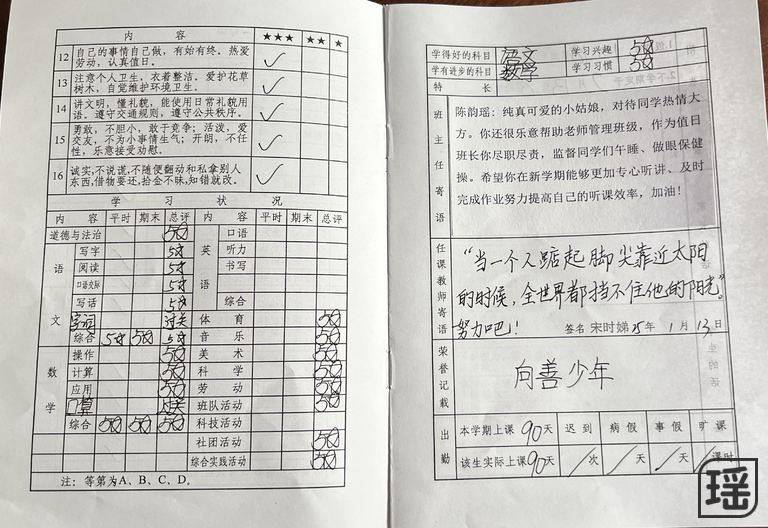 内 容 ★★★ ★★ ★
12 自己的事情自己做，有始有终。热爱
劳动，认真值日。
13 注意个人卫生，衣着整洁。爱护花草
树木，自觉维护环境卫生。
14 讲文明，懂礼貌，能使用日常礼貌用
语。遵守交通规则，遵守公共秩序。
15 勇敢，不胆小，敢于竞争；活泼，爱
交友，不为小事情生气；开朗，不任
性，乐意接受劝慰。
16 诚实,不说谎,不随便翻动和私拿别人
东西,借物要还,拾金不昧,知错就改。
学 习 状 况
内 容 平时 期末 总评 内 容 平时 期末 总评
道德与法治 5☆ 英语 口语
语文 写字 5☆ 听力
阅读 5☆ 书写
口语交际 5☆
写话 5☆ 综合
字词 过关 体 育 5☆
综合 5☆ 5☆ 5☆ 音 乐 5☆
数学 操作 5☆ 美 术 5☆
计算 5☆ 科 学 5☆
应用 5☆ 劳 动 5☆
口算 过关 班队活动 5☆
综合 5☆ 5☆ 5☆ 科技活动
社团活动 5☆
综合实践活动 5☆
注：等第为A、B、C、D。
学得好的科目 语文 学习兴趣 5☆
学有进步的科目 数学 学习习惯 5☆
特 长
班主任寄语
陈韵瑶：纯真可爱的小姑娘，对待同学热情大
方。你还很乐意帮助老师管理班级，作为值日
班长你尽职尽责，监督同学们午睡、做眼保健
操。希望你在新学期能够更加专心听讲、及时
完成作业努力提高自己的听课效率，加油！
任课教师寄语
“当一个人踮起脚尖靠近太阳
的时候，全世界都挡不住他的阳光。”
努力吧！ 签名 宋时娣 25年 1月 13日
荣誉记载
向善少年
出勤 本学期上课 90天 迟到 病假 事假 旷课
该生实际上课 90天 /次 /天 /天 /课时
瑶